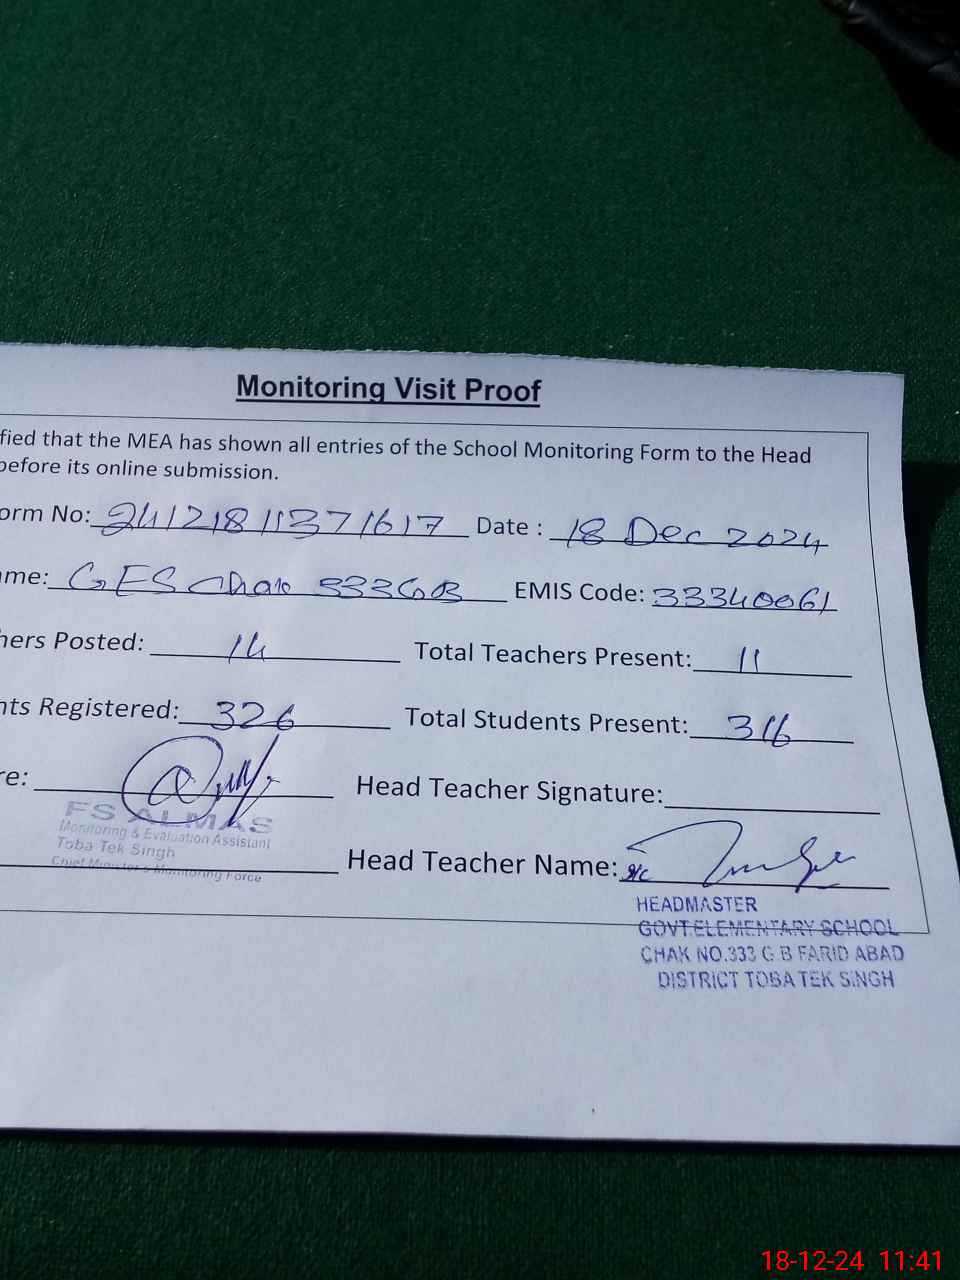 Monitoring Visit Proof
fied that the MEA has shown all entries of the School Monitoring Form to the Head
before its online submission.
orm No: 24121811371617 Date : 18 Dec 2024
ame: GES Chak 333GB EMIS Code: 33340061
hers Posted: 14 Total Teachers Present: 11
nts Registered: 326 Total Students Present: 316
re: Head Teacher Signature:
FS ALMAS
Monitoring & Evaluation Assistant
Toba Tek Singh
Chief Minister's Monitoring Force
Head Teacher Name:
HEADMASTER
GOVT.ELEMENTARY SCHOOL
CHAK NO.333 G.B FARID ABAD
DISTRICT TOBA TEK SINGH
18-12-24 11:41